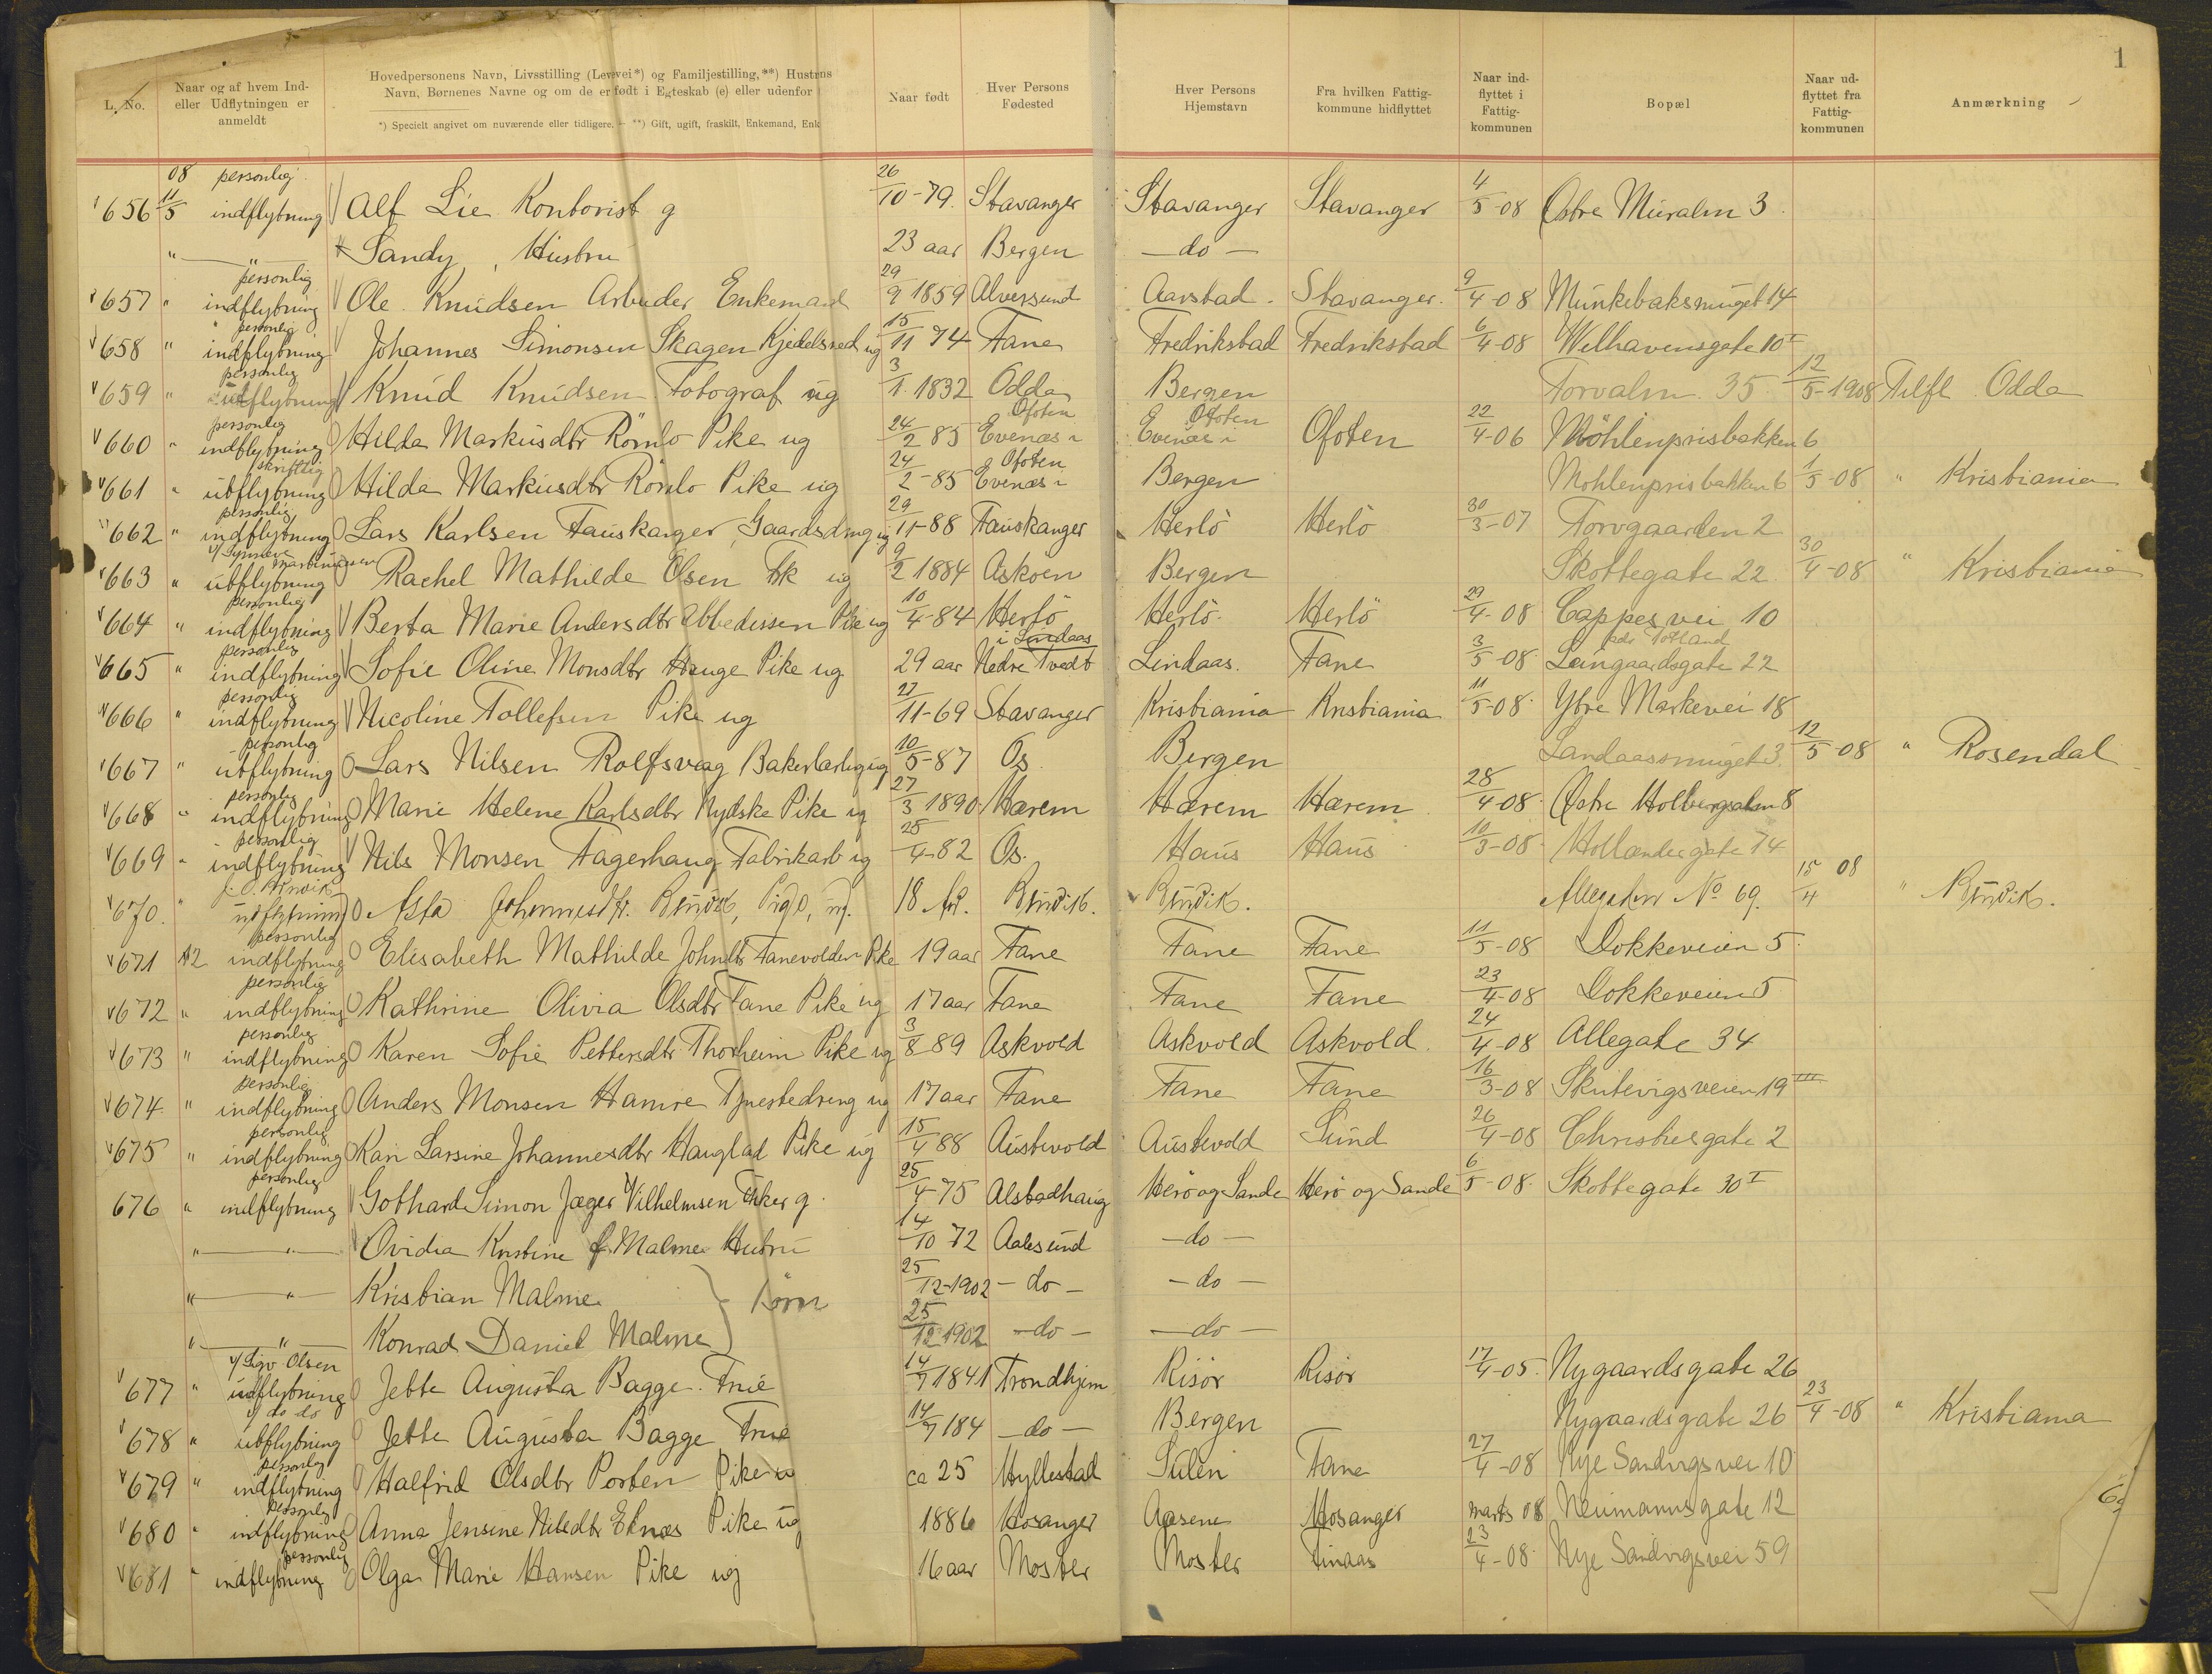 1
L. No.
Naar og af hvem Ind-
eller Udflytningen er
anmeldt
Hovedpersonens Navn, Livsstilling (Levevei*) og Familjestilling,**) Hustrus
Navn, Børnenes Navne og om de er født i Egteskab (e) eller udenfor
*) Specielt angivet om nuværende eller tidligere. — **) Gift, ugift, fraskilt, Enkemand, Enk
Naar født
Hver Persons
Fødested
Hver Persons
Hjemstavn
Fra hvilken Fattig-
kommune hidflyttet
Naar ind-
flyttet i
Fattig-
kommunen
Bopæl
Naar ud-
flyttet fra
Fattig-
kommunen
Anmærkning
656 11/5 08 personlig indflytning Alf Lie Kontorist g 26/10-79. Stavanger Stavanger Stavanger 4/5-08 Østre Muralm 3
" " Sandy, Hustru 23 aar Bergen -do-
657 " personlig indflytning Ole Knudsen Arbeider Enkemand 29/9 1859 Alversund Aarstad. Stavanger. 9/4-08 Munkebaksmuget 14
658 " personlig indflytning Johannes Simonsen Skagen Kjedelsmed ug 15/11 74 Fane Fredrikstad Fredrikstad 6/4-08 Welhavensgate 10 I
659 " personlig utflytning Knud Knudsen Fotograf ug 3/1. 1832 Odda Bergen Torvalm. 35 12/5-1908 Tilfl. Odda
660 " personlig indflytning Hilda Markusdtr Römlo Pike ug 24/2 85 Evenæs i Ofoten Evenæs i Ofoten Ofoten 22/4-06 Möhlenprisbakken 6
661 " skriftlig utflytning Hilda Markusdtr Römlo Pike ug 24/2-85 Evenæs i Ofoten Bergen Möhlenprisbakken 6 1/5-08 " Kristiania
662 " personlig indflytning Lars Karlsen Fauskanger, Gaardsdreng ug 29/11-88 Fauskanger Herlö Herlö 30/3-07 Torvgaarden 2
663 " v/ Synneve Martinussen utflytning Rachel Mathilde Olsen Fbk ug 9/2 1884 Askøen Bergen Skottegate 22 30/4-08 " Kristiania
664 " personlig indflytning Berta Marie Andersdtr Abbedissen Pike ug 10/4-84 Herlö Herlö. Herlö 29/4-08 Cappes vei 10
665 " personlig indflytning Sofie Oline Monsdtr Hauge Pike ug 29 aar Nedre Tvedt i Lindaas Lindaas. Fane 3/5-08 Langaardsgate 22
666 " personlig indflytning Nicoline Tollefsen Pike ug 27/11-69 Stavanger Kristiania Kristiania 11/5-08 Ytre Markevei 18
667 " personlig utflytning Lars Nilsen Rolfsvaag Bakerlærling ug 10/5-87 Os Bergen Landaassmuget 3 12/5-08 " Rosendal
668 " personlig indflytning Marie Helene Karlsdtr Nydske Pike ug 27/3 1890 Harem Harem Harem 28/4-08 Østre Holbergsalm 8
669 " personlig indflytning Nils Monsen Fagerhaug Fabrikarb ug 25/4-82 Os. Haus Haus 10/3-08 Hollændergate 14
670. " utflytning Asta Johannesdtr. 18 Aar. Allegaten No 69. 15/4 08 "
671 12 personlig indflytning Elisabeth Mathilde Johndtr Fanevolden Pike 19 aar Fane Fane Fane 11/5-08 Dokkeveien 5
672 " personlig indflytning Kathrine Olivia Olsdtr Fane Pike ug 17 aar Fane Fane Fane 23/4-08 Dokkeveien 5
673 " personlig indflytning Karen Sofie Pettersdtr Thorheim Pike ug 3/8 89 Askvold Askvold Askvold 24/4-08 Allegate 34
674 " personlig indflytning Anders Monsen Hamre Tjenestedreng ug 17 aar Fane Fane Fane 16/3-08 Skutevigsveien 19 III
675 " personlig indflytning Kari Larsine Johannesdtr Hauglad Pike ug 15/4 88 Austevold Austevold Sund 26/4-08 Christiesgate 2
676 " personlig indflytning Gothard Simon Jæger Vilhelmsen Fisker g. 25/4-75 Alstadhaug Herö og Sande Herö og Sande 6/5-08 Skottegate 30 I
" " Ovidia Kristine f. Malme Hustru 14/10 72 Aalesund -do-
" " Kristian Malme } börn 25/12-1902 -do- -do-
" " Konrad Daniel Malme 25/12 1902 -do- -do-
677 " v/ Sigv Olsen indflytning Jette Augusta Bagge. Frue 14/7 1841 Trondhjem Risör Risör 17/4-05 Nygaardsgate 26
678 " v/ do do utflytning Jette Augusta Bagge Frue 14/7 184 -do- Bergen Nygaardsgate 26 23/4-08 " Kristiania
679 " personlig indflytning Halfrid Olsdtr Porten Pike u ca 25 Hyllestad Sulen Fane 27/4-08 Nye Sandvigsvei 10
680 " personlig indflytning Anna Jensine Nilsdtr Eknæs Pike ug 1886 Hosanger Aasene Hosanger marts 08 Neumannsgate 12
681 " personlig indflytning Olga Marie Hansen Pike ug 16 aar Moster Moster Finaas 23/4-08 Nye Sandvigsvei 59